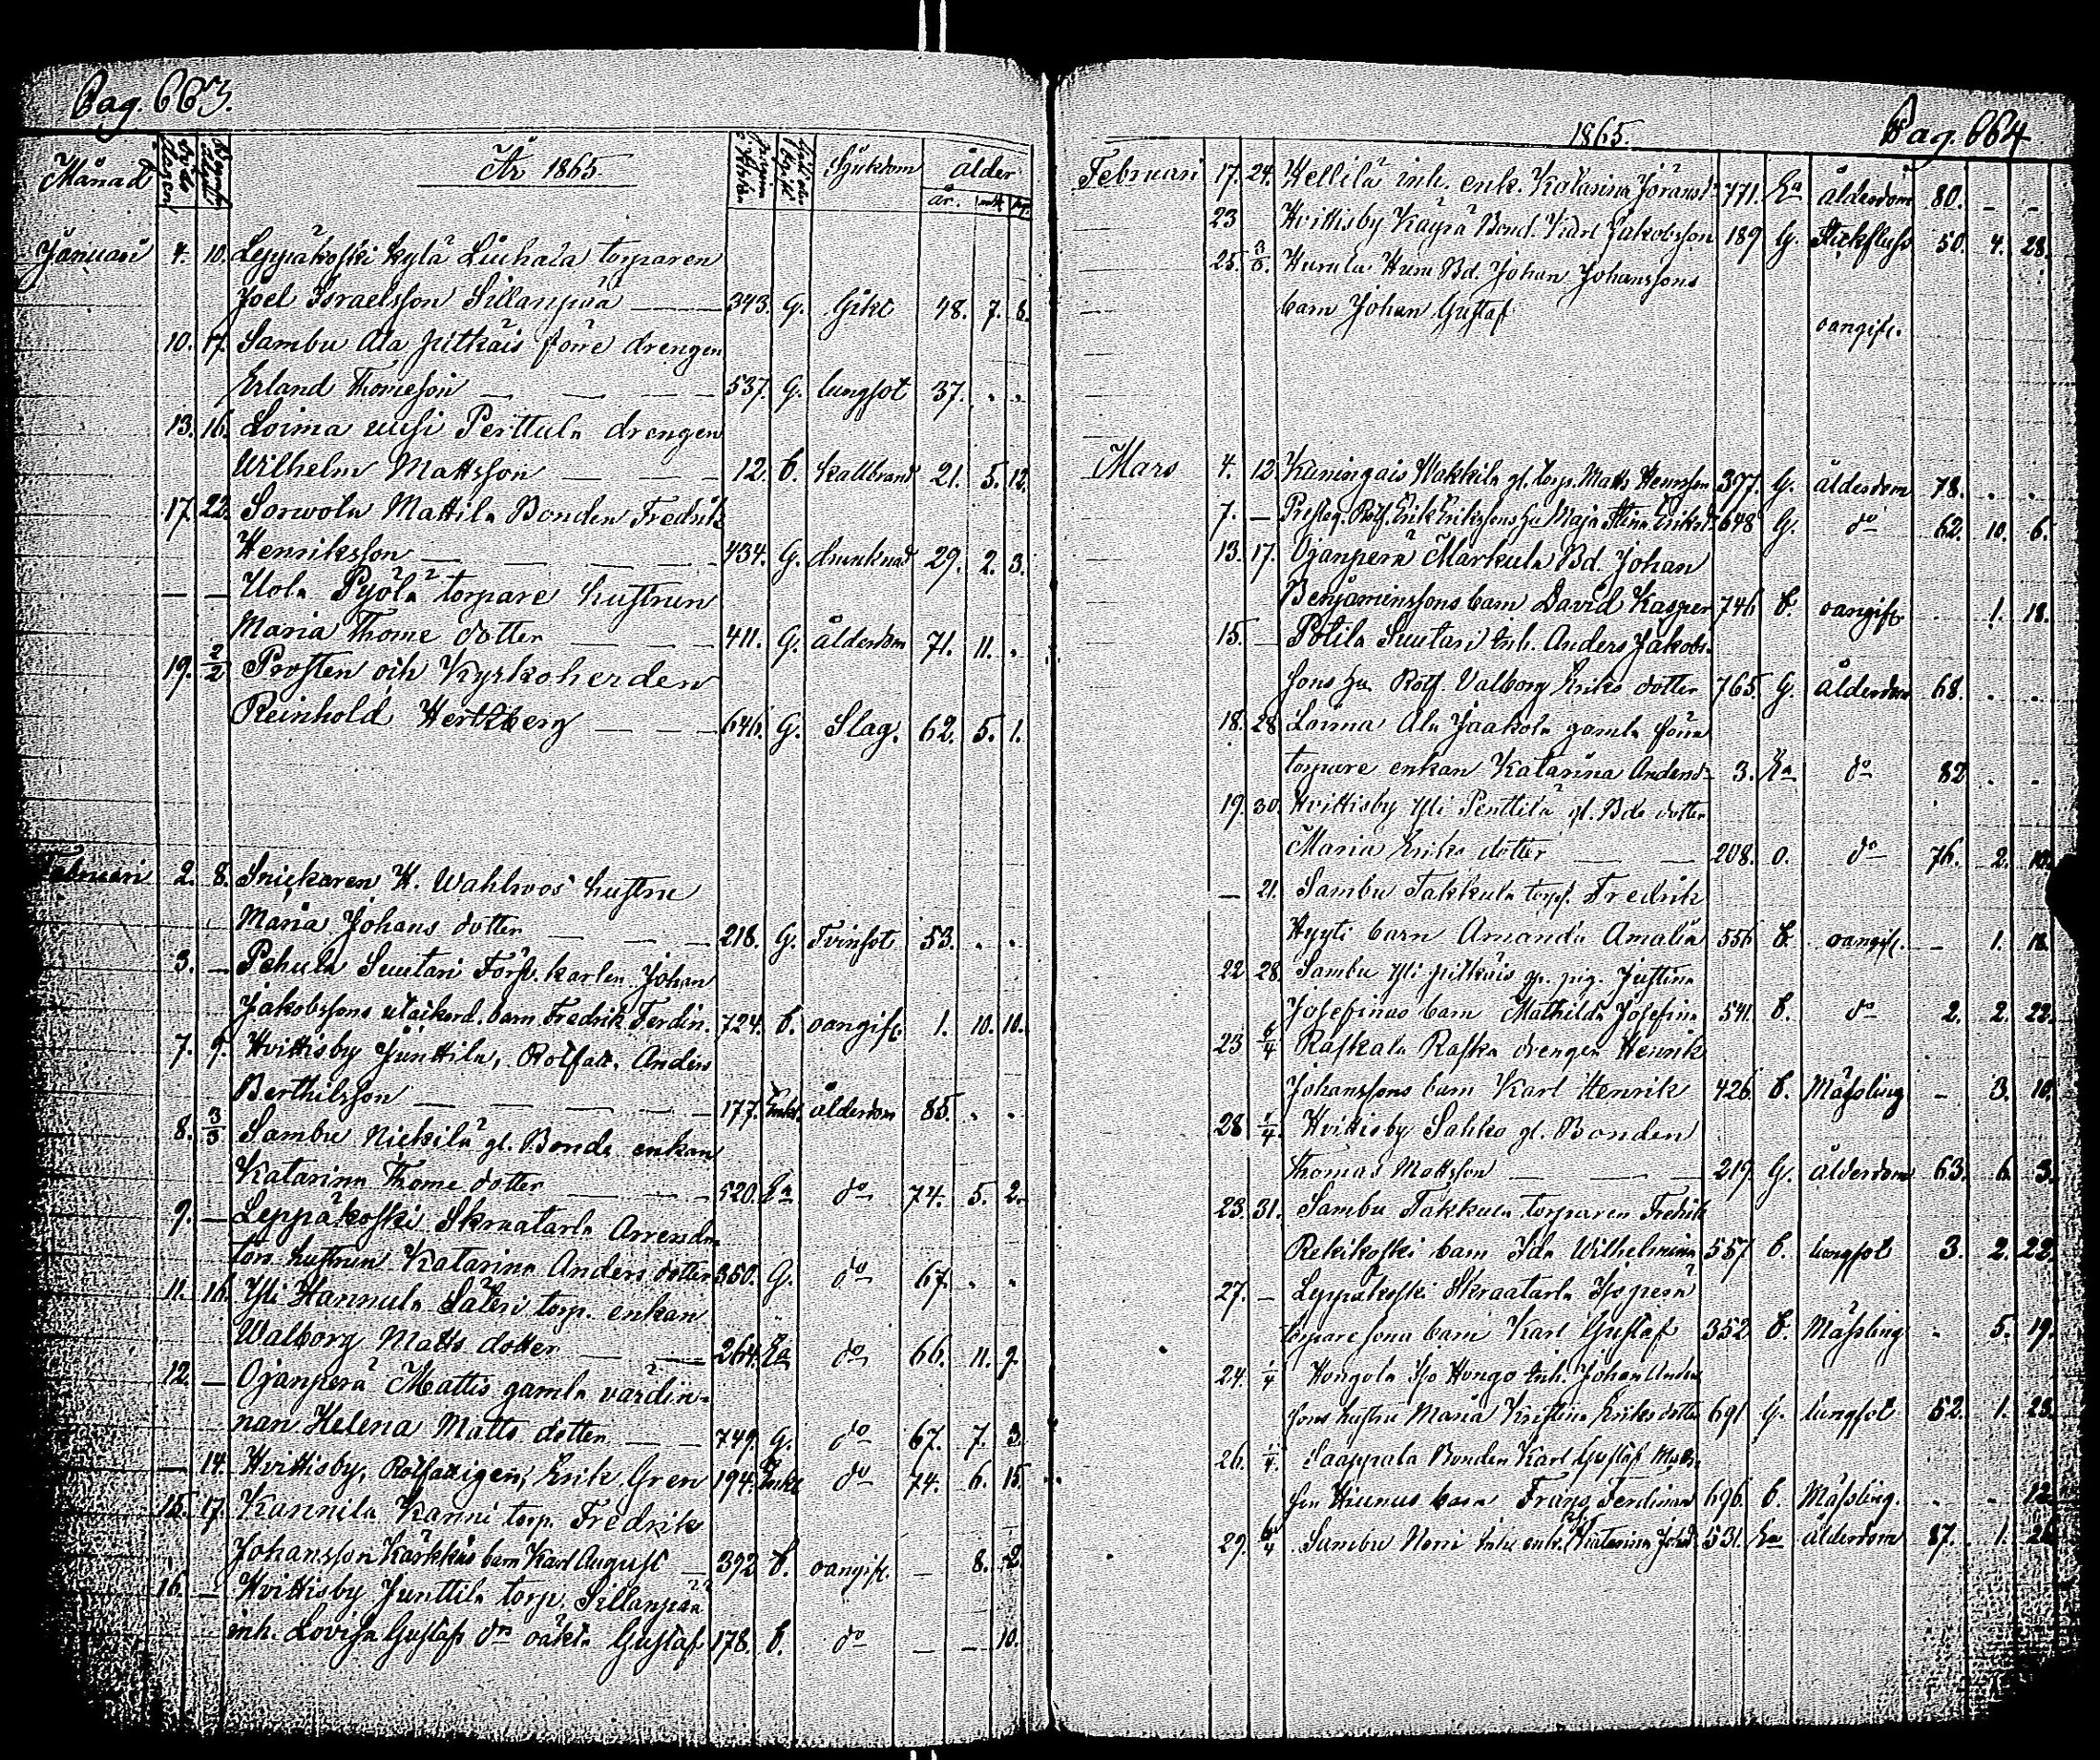 Pag. 663.
Månad År 1865. Sjukdom ålder
år.
Januari 4. 10. Leppäkoski kylä Liuhala torparen
Joel Israelsson Sillanpää 343. G. Gikt 48. 7. 8.
10. 17. Sambu Ala pitkäis förre drengen
Erland Thomeson 537. G. lungsot 37. . .
13. 16. Loima uusi Perttula drengen
Wilhelm Mattsson 12. O. kallbrand 21. 5. 12.
17. 22. Sorwola Mattila Bonden Fredrik
Henriksson 434. G. drunknad 29. 2. 3.
— — Uola Pyölä torpare hustrun
Maria Thome dotter 411. G. ålderdom 71. 11. .
19. 2/2 Prosten och Kyrkoherden
Reinhold Hertzberg 646. G. Slag. 62. 5. 1.
Februari 2. 8. Snickaren H. Wahlroos hustru
Maria Johans dotter 218. G. Tvinsot 53. . .
3. — Pehula Suutari Torp. karlen Johan
Jakobssons barn Fredrik Ferdin. 724. O. oangift. 1. 10. 10.
7. 9. Hvittisby Junttila, Rotfatt. Anders
Berthilsson 177. Enkl. ålderdom 85. . .
8. 3/3 Sambu Nickilä gl. Bonde enkan
Katarina Thome dotter 520. Ea do 74. 5. 2.
9. — Leppäkoski Skraatarla Arrenda
tors hustrun Katarina Anders dotter 350. G. do 67. . .
11. 16. Yli Hannula Säteri torp. enkan
Walborg Matts dotter 264. Ea do 66. 11. 9.
12. — Ojanperä Mattis gamla värdin-
nan Helena Matts dotter 749. G. do 67. 7. 3.
— 14. Hvittisby, Rotfattigen, Erik Gren 194. Enkl do 74. 6. 15.
15. 17. Kannila Kanni torp. Fredrik
Johansson Kärkkis barn Karl August 392 O. oangift. — 8. 2.
16. — Hvittisby Junttila torp. Sillanpää
inh. Lovisa Gustafs dr oäkta Gustaf 178. O. do — — 10.
1865. Pag. 664
Februari 17. 24. Hellilä inh. enk. Katarina Jöransd. 771. Ea ålderdom 80. — —
23 Hvittisby Käyrä Bond. Karl Jakobsson 189 G. Stickfluss 50. 4. 28.
25. 3/3. Humla Hum Bd. Johan Johanssons
barn Johan Gustaf oangift.
Mars 4. 12. Kuningais Wakkila gl. torp. Matts Henrsson 397. G. ålderdom 78. . .
7. — Presteg. Rotf. Erik Erikssons hu Maja Stina Eriksdr 648 G. do 62. 10. 6.
13. 17. Ojanperä Markula Bd. Johan
Benjaminssons barn David Kasper 746 O. oangift. . 1. 18.
15. — Potila Suutari inh. Anders Jakobs-
sons hu Rotf. Valborg Eriks dotter 765. G. ålderdom 68. . .
18. 28 Loima Ala Jaakola gamla förra
torpare enkan Katarina Andersd. 3. Ea do 82 . .
19. 30. Hvittisby Yli Penttilä gl. Bds dotter
Maria Eriks dotter 208. O. do 76. 2. 10.
— 21. Sambu Takkula torp. Fredrik
Hyyti barn Amanda Amalia 556 O. oangift. — 1. 18.
22 28. Sambu Yli pitkäis pig. Justina
Josefinas barn Mathilda Josefina 541. O. do 2. 2. 22.
23 /4 Raskala Raska drengen Henrik
Johanssons barn Karl Henrik 426. O. Mässling — 3. 10.
28. 1/4. Hvittisby Sakko gl. Bonden
Thomas Mattsson 219. G. ålderdom 63. 6. 3.
23. 31. Sambu Takkula torparen Fredrik
Rekikoski barn Ida Wilhelmina 557 O. lungsot 3. 2. 22.
27. — Leppäkoski Skraatarla Isoperä
torpare sons barn Karl Gustaf 352 O. Mässling - 5. 19.
24. 1/4 Hongola Iso Hongo inh. Johan Anders
sons hustru Maria Kristina Eriks dotter 691 G. lungsot 52. 1. 23.
26. /4. Saappala Bonden Karl Gustaf Matts
son Hiunus barn Frans Ferdinand 696. O. Mässling. . - 12.
29. /4 Sambu Norri inh. enk. Katarina Johd. 531. Ea ålderdom 87. 1.